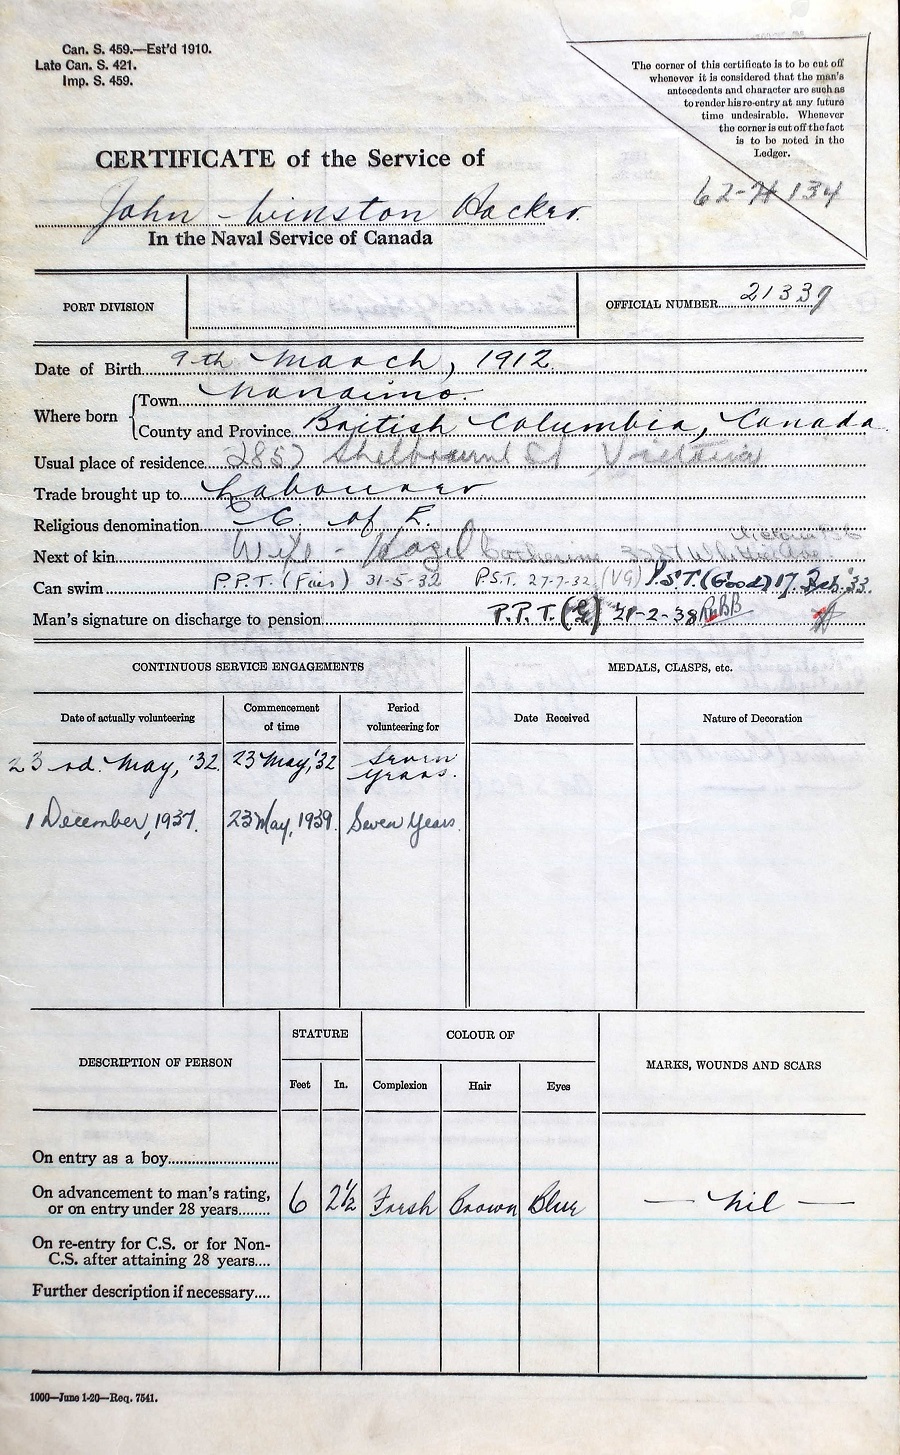 Can. S. 459.—Est'd 1910.
Late Can. S. 421.
Imp. S. 459.
The corner of this certificate is to be cut off
whenever it is considered that the man's
antecedents and character are such as
to render his re-entry at any future
time undesirable. Whenever
the corner is cut off the fact
is to be noted in the
Ledger.
62-H 134
CERTIFICATE of the Service of
John Winston Hacker
In the Naval Service of Canada
PORT DIVISION
OFFICIAL NUMBER 21339
Date of Birth 9th March, 1912
Where born
Town Nanaimo.
County and Province British Columbia, Canada
Usual place of residence 2857 Shelbourne St Victoria
Trade brought up to Labourer
Religious denomination C. of E.
Victoria
Next of kin Wife - Hazel Catherine Ave
Can swim P.P.T. (Fair) 31-5-32 P.S.T. 27-7-32 (VG) P.S.T. (Good) 17 Feb. '33.
Man's signature on discharge to pension P.P.T. 21-2-38
CONTINUOUS SERVICE ENGAGEMENTS
MEDALS, CLASPS, etc.
Date of actually volunteering
Commencement of time
Period volunteering for
Date Received
Nature of Decoration
23rd. May, '32. 23 May, '32 Seven Years.
1 December, 1937. 23 May, 1939. Seven Years.
DESCRIPTION OF PERSON
STATURE
COLOUR OF
MARKS, WOUNDS AND SCARS
Feet In. Complexion Hair Eyes
On entry as a boy
On advancement to man's rating,
or on entry under 28 years 6 2½ Fresh Brown Blue — Nil —
On re-entry for C.S. or for Non-
C.S. after attaining 28 years
Further description if necessary
1000—June 1-20—Req. 7541.